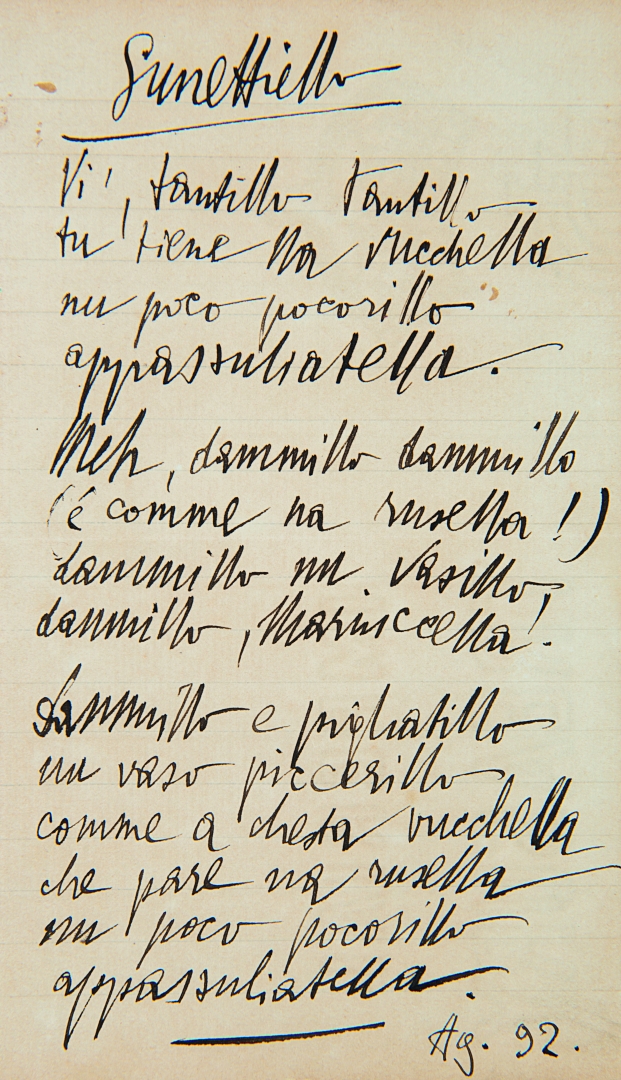 Sunettiello
Vi', tantillo tantillo
tu tiene na vucchella
nu poco pocorillo
appassuliatella.
Meh, dammillo dammillo
(é comme na rusella!)
dammillo nu vasillo,
dammillo, Mariuccella!
Dammillo e pigliatillo
nu vaso piccerillo
comme a chesta vucchella
che pare na rusella
nu poco pocorillo
appassuliatella.
Ag. 92.